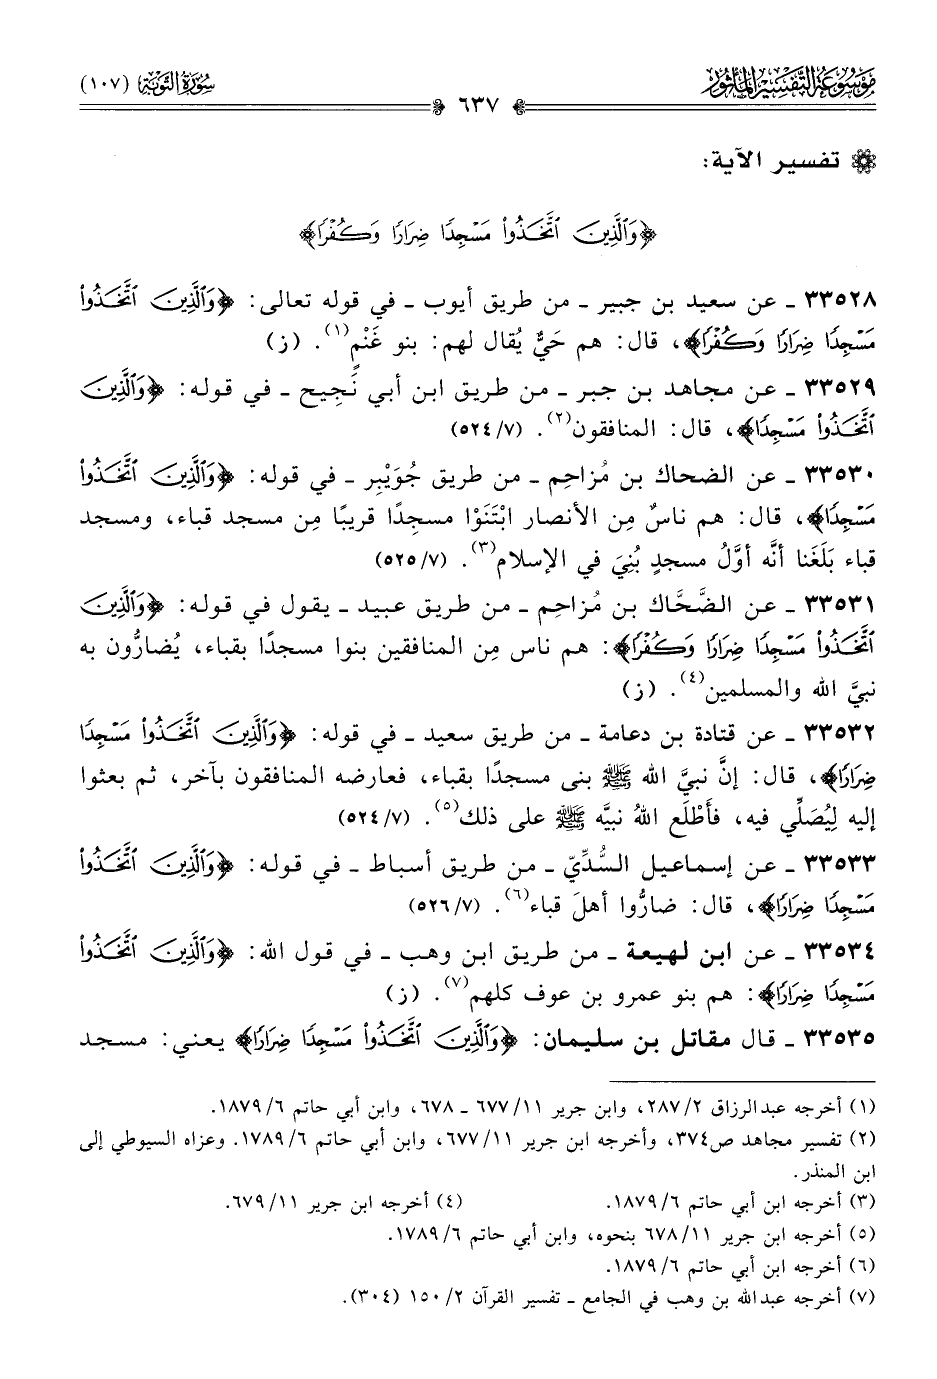 موسوعة التفسير المأثور
سورة التوبة (١٠٧)
٦٣٧
تفسير الآية:
﴿وَٱلَّذِينَ ٱتَّخَذُوا۟ مَسْجِدًا ضِرَارًا وَكُفْرًا﴾
٣٣٥٢٨ ـ عن سعيد بن جبير ـ من طريق أيوب ـ في قوله تعالى: ﴿وَٱلَّذِينَ ٱتَّخَذُوا۟
مَسْجِدًا ضِرَارًا وَكُفْرًا﴾، قال: هم حَيٌّ يُقال لهم: بنو غَنْمٍ(١). (ز)
٣٣٥٢٩ ـ عن مجاهد بن جبر ـ من طريق ابن أبي نَجِيح ـ في قوله: ﴿وَٱلَّذِينَ
ٱتَّخَذُوا۟ مَسْجِدًا﴾، قال: المنافقون(٢). (٧/ ٥٢٤)
٣٣٥٣٠ ـ عن الضحاك بن مُزاحِم ـ من طريق جُوَيْبِر ـ في قوله: ﴿وَٱلَّذِينَ ٱتَّخَذُوا۟
مَسْجِدًا﴾، قال: هم ناسٌ مِن الأنصار ابْتَنَوْا مسجِدًا قريبًا مِن مسجد قباء، ومسجد
قباء بَلَغَنا أنَّه أوَّلُ مسجدٍ بُنِيَ في الإسلام(٣). (٧/ ٥٢٥)
٣٣٥٣١ ـ عن الضَّحَّاك بن مُزاحِم ـ من طريق عبيد ـ يقول في قوله: ﴿وَٱلَّذِينَ
ٱتَّخَذُوا۟ مَسْجِدًا ضِرَارًا وَكُفْرًا﴾: هم ناس مِن المنافقين بنوا مسجدًا بقباء، يُضارُّون به
نبيَّ الله والمسلمين(٤). (ز)
٣٣٥٣٢ ـ عن قتادة بن دعامة ـ من طريق سعيد ـ في قوله: ﴿وَٱلَّذِينَ ٱتَّخَذُوا۟ مَسْجِدًا
ضِرَارًا﴾، قال: إنَّ نبيَّ الله ﷺ بنى مسجدًا بقباء، فعارضه المنافقون بآخر، ثم بعثوا
إليه لِيُصَلِّي فيه، فأَطْلَع اللهُ نبيَّه ﷺ على ذلك(٥). (٧/ ٥٢٤)
٣٣٥٣٣ ـ عن إسماعيل السُّدِّيّ ـ من طريق أسباط ـ في قوله: ﴿وَٱلَّذِينَ ٱتَّخَذُوا۟
مَسْجِدًا ضِرَارًا﴾، قال: ضارُّوا أهلَ قباء(٦). (٧/ ٥٢٦)
٣٣٥٣٤ ـ عن ابن لهيعة ـ من طريق ابن وهب ـ في قول الله: ﴿وَٱلَّذِينَ ٱتَّخَذُوا۟
مَسْجِدًا ضِرَارًا﴾: هم بنو عمرو بن عوف كلهم(٧). (ز)
٣٣٥٣٥ ـ قال مقاتل بن سليمان: ﴿وَٱلَّذِينَ ٱتَّخَذُوا۟ مَسْجِدًا ضِرَارًا﴾ يعني: مسجد
(١) أخرجه عبدالرزاق ٢/ ٢٨٧، وابن جرير ١١/ ٦٧٧ ـ ٦٧٨، وابن أبي حاتم ٦/ ١٨٧٩.
(٢) تفسير مجاهد ص٣٧٤، وأخرجه ابن جرير ١١/ ٦٧٧، وابن أبي حاتم ٦/ ١٧٨٩. وعزاه السيوطي إلى
ابن المنذر.
(٣) أخرجه ابن أبي حاتم ٦/ ١٨٧٩. (٤) أخرجه ابن جرير ١١/ ٦٧٩.
(٥) أخرجه ابن جرير ١١/ ٦٧٨ بنحوه، وابن أبي حاتم ٦/ ١٧٨٩.
(٦) أخرجه ابن أبي حاتم ٦/ ١٨٧٩.
(٧) أخرجه عبدالله بن وهب في الجامع ـ تفسير القرآن ٢/ ١٥٠ (٣٠٤).